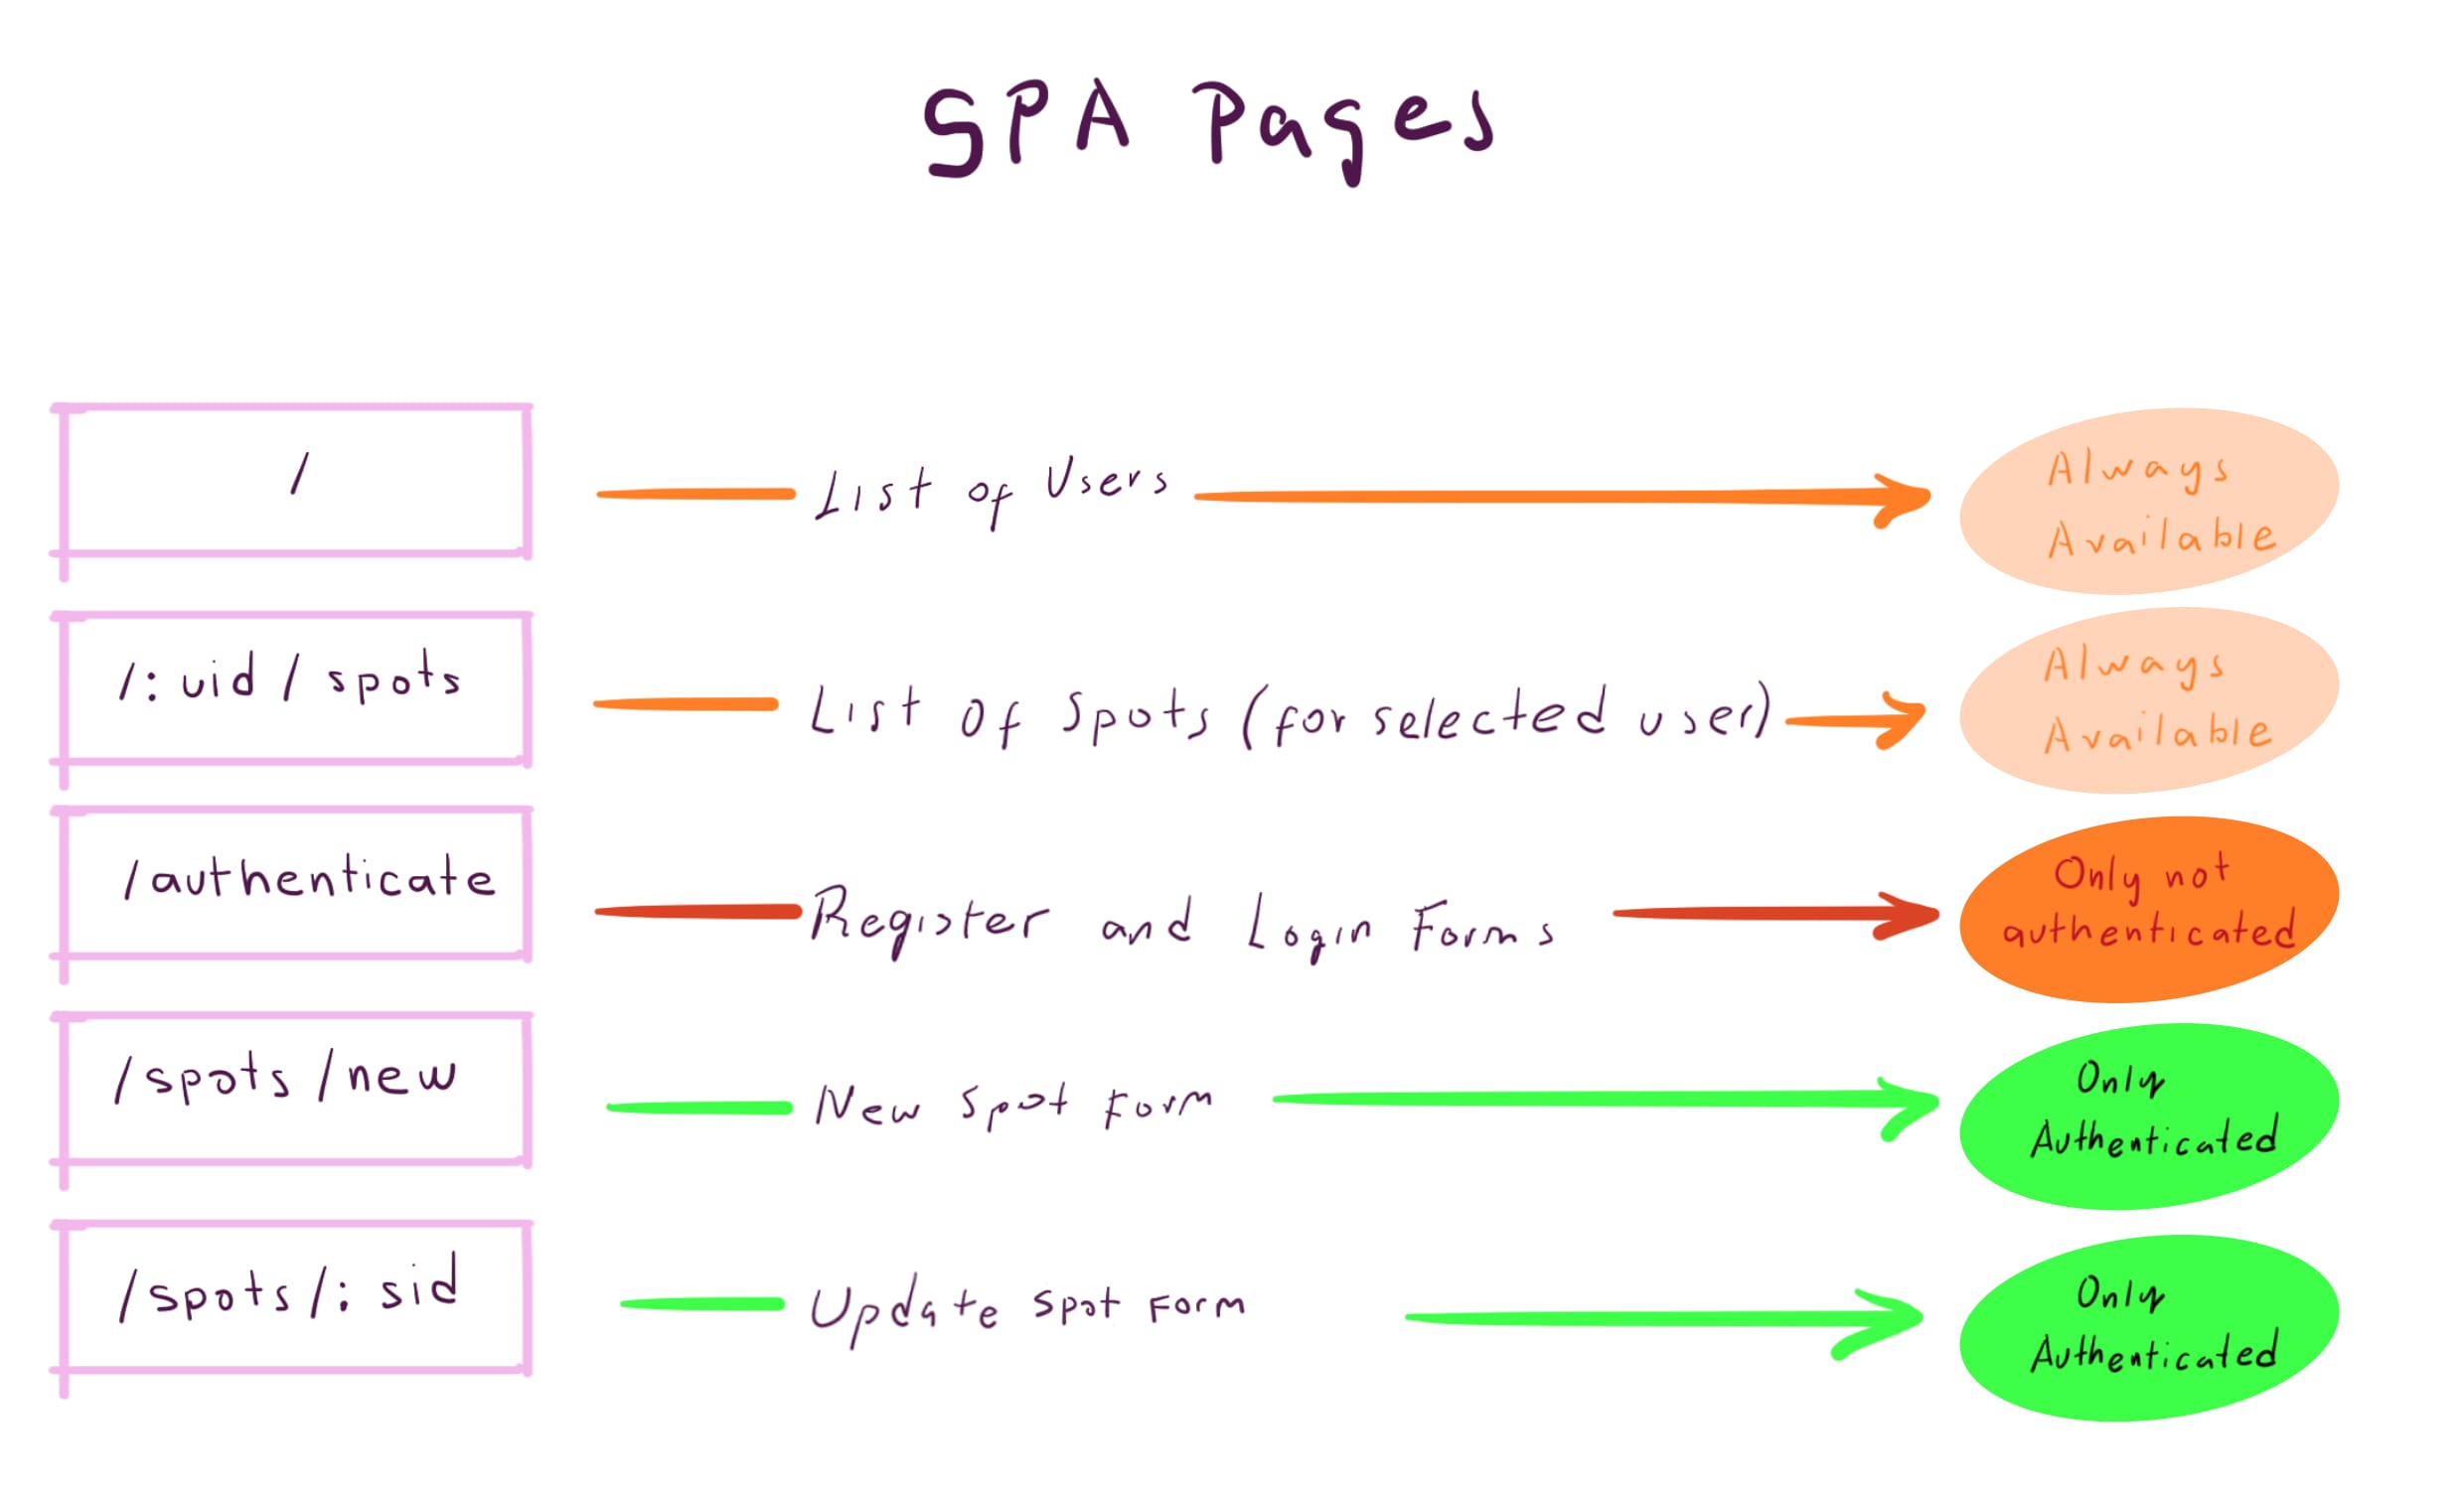 SPA Pages
/ List of Users Always Available
/:uid/spots List Of Spots (for selected user) Always Available
/authenticate Register and Login Forms Only not authenticated
/spots/new New Spot Form Only Authenticated
/spots/:sid Update Spot Form Only Authenticated